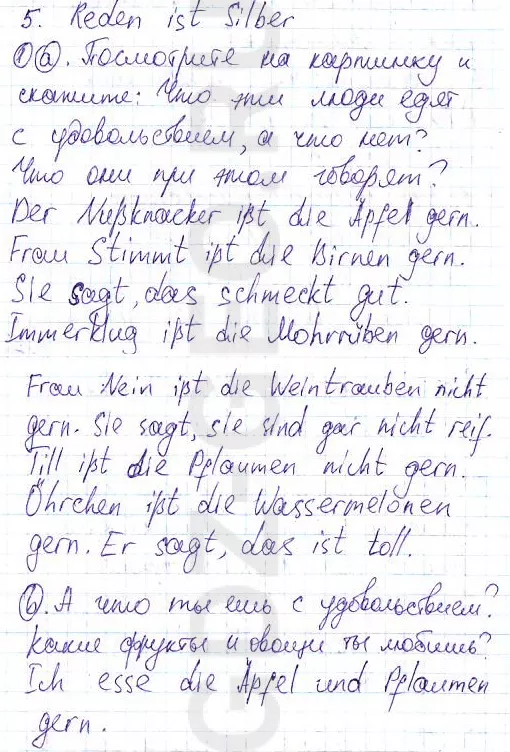 5. Reden ist Silber
1 a. Посмотрите на картинку и
скажите: Что эти люди едят
с удовольствием, а что нет?
Что они при этом говорят?
Der Nußknacker ißt die Äpfel gern.
Frau Stimmt ißt die Birnen gern.
Sie sagt, das schmeckt gut.
Immerklug ißt die Mohrrüben gern.
Frau Nein ißt die Weintrauben nicht
gern. Sie sagt, sie sind gar nicht reif.
Till ißt die Pflaumen nicht gern.
Öhrchen ißt die Wassermelonen
gern. Er sagt, das ist toll.
b. А что ты ешь с удовольствием?
Какие фрукты и овощи ты любишь?
Ich esse die Äpfel und Pflaumen
gern.
GDZ-GEO.RU